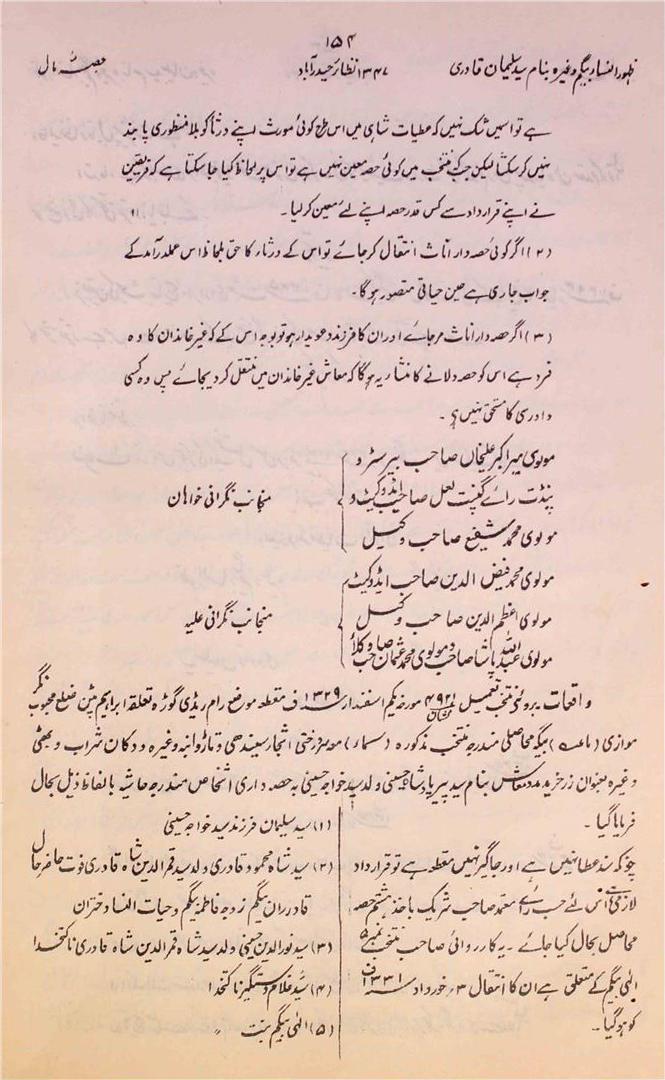 ۱۵۴
ظہور النساء بیگم وغیرہ بنام سید سلیمان قادری
۱۳۴۷ نظائر حیدرآباد
حصہ مال
ہے تو اسمیں شک نہیں کہ عطیات شاہی میں اس طرح کوئی مورث اپنے ورثا کو بلا منظوری پابند
نہیں کرسکتا لیکن جبکہ منتخب میں کوئی حصہ معین نہیں ہے تو اس پر لحاظ کیا جا سکتا ہے کہ فریقین
نے اپنے قرارداد سے کس قدر حصہ اپنے لئے معین کر لیا۔
(۲) اگر کوئی حصہ دار اناث انتقال کر جائے تو اس کے ورثاء کا حق بلحاظ اس عملدرآمد کے
جواب جاری ہے حین حیاتی متصور ہوگا۔
(۳) اگر حصہ دار اناث مر جائے اور ان کا فرزند دعویدار ہو تو بوجہ اس کے کہ غیر خاندان کا وہ
فرد ہے اس کو حصہ دلانے کا منشاء یہ ہوگا کہ معاش غیر خاندان میں منتقل کر دیجائے پس وہ کسی
دادرسی کا مستحق نہیں ہے۔
مولوی میر اکبر علیخاں صاحب بیرسٹر و
پنڈت رائے گنپت لعل صاحب ایڈوکیٹ و
منجانب نگرانی خواہان
مولوی محمد شفیع صاحب وکیل
مولوی محمد فیض الدین صاحب ایڈوکیٹ
مولوی اعظم الدین صاحب وکیل
منجانب نگرانی علیہ
مولوی عبداللہ پاشا صاحب و مولوی محمد عثمان صاحب وکلا
واقعات یہ ۔ بروئے منتخب تعمیل نشان ۴۹۲ مورخہ یکم اسفندار ۱۳۲۹ف مقطعہ موضع رام ریڈی گوڑہ تعلقہ ابراہیم پٹن ضلع محبوب نگر
موازی بیگہ محاصلی مندرجہ منتخب مذکورہ معہ زرختی اشجار سیندھی و تاڑ وانبہ وغیرہ و دکان شراب و بھٹی
وغیرہ بعنوان زر خرید مدد معاش بنام سید پیر پادشاہ حسینی ولد سید خواجہ حسینی بہ حصہ داری اشخاص مندرجہ حاشیہ بالفاظ ذیل بحال
فرمایا گیا۔
چونکہ سند عطا نہیں ہے اور جاگیر نہیں مقطعہ ہے تو قرارداد
لازمی ہے اس لئے حسب رائے معتمد صاحب شریک باخذ ہشتم حصہ
محاصل بحال کیا جائے۔ یہ کارروائی صاحب منتخب نمبر ۵
الٰہی بیگم کے متعلق ہے ان کا انتقال ۳؍ خورداد ۱۳۳۱ف
کو ہوگیا۔
(۱) سید سلیمان فرزند سید خواجہ حسینی
(۲) سید شاہ محمود قادری ولد سید قمر الدین شاہ قادری فوت حاضر حال
قادران بیگم زوجہ فاطمہ بیگم و حیات النساء دختران
(۳) سید نور الدین حسینی ولد سید شاہ قمر الدین شاہ قادری ناکتخدا
(۴) سید غلام دستگیر ناکتخدا
(۵) الٰہی بیگم بنت "